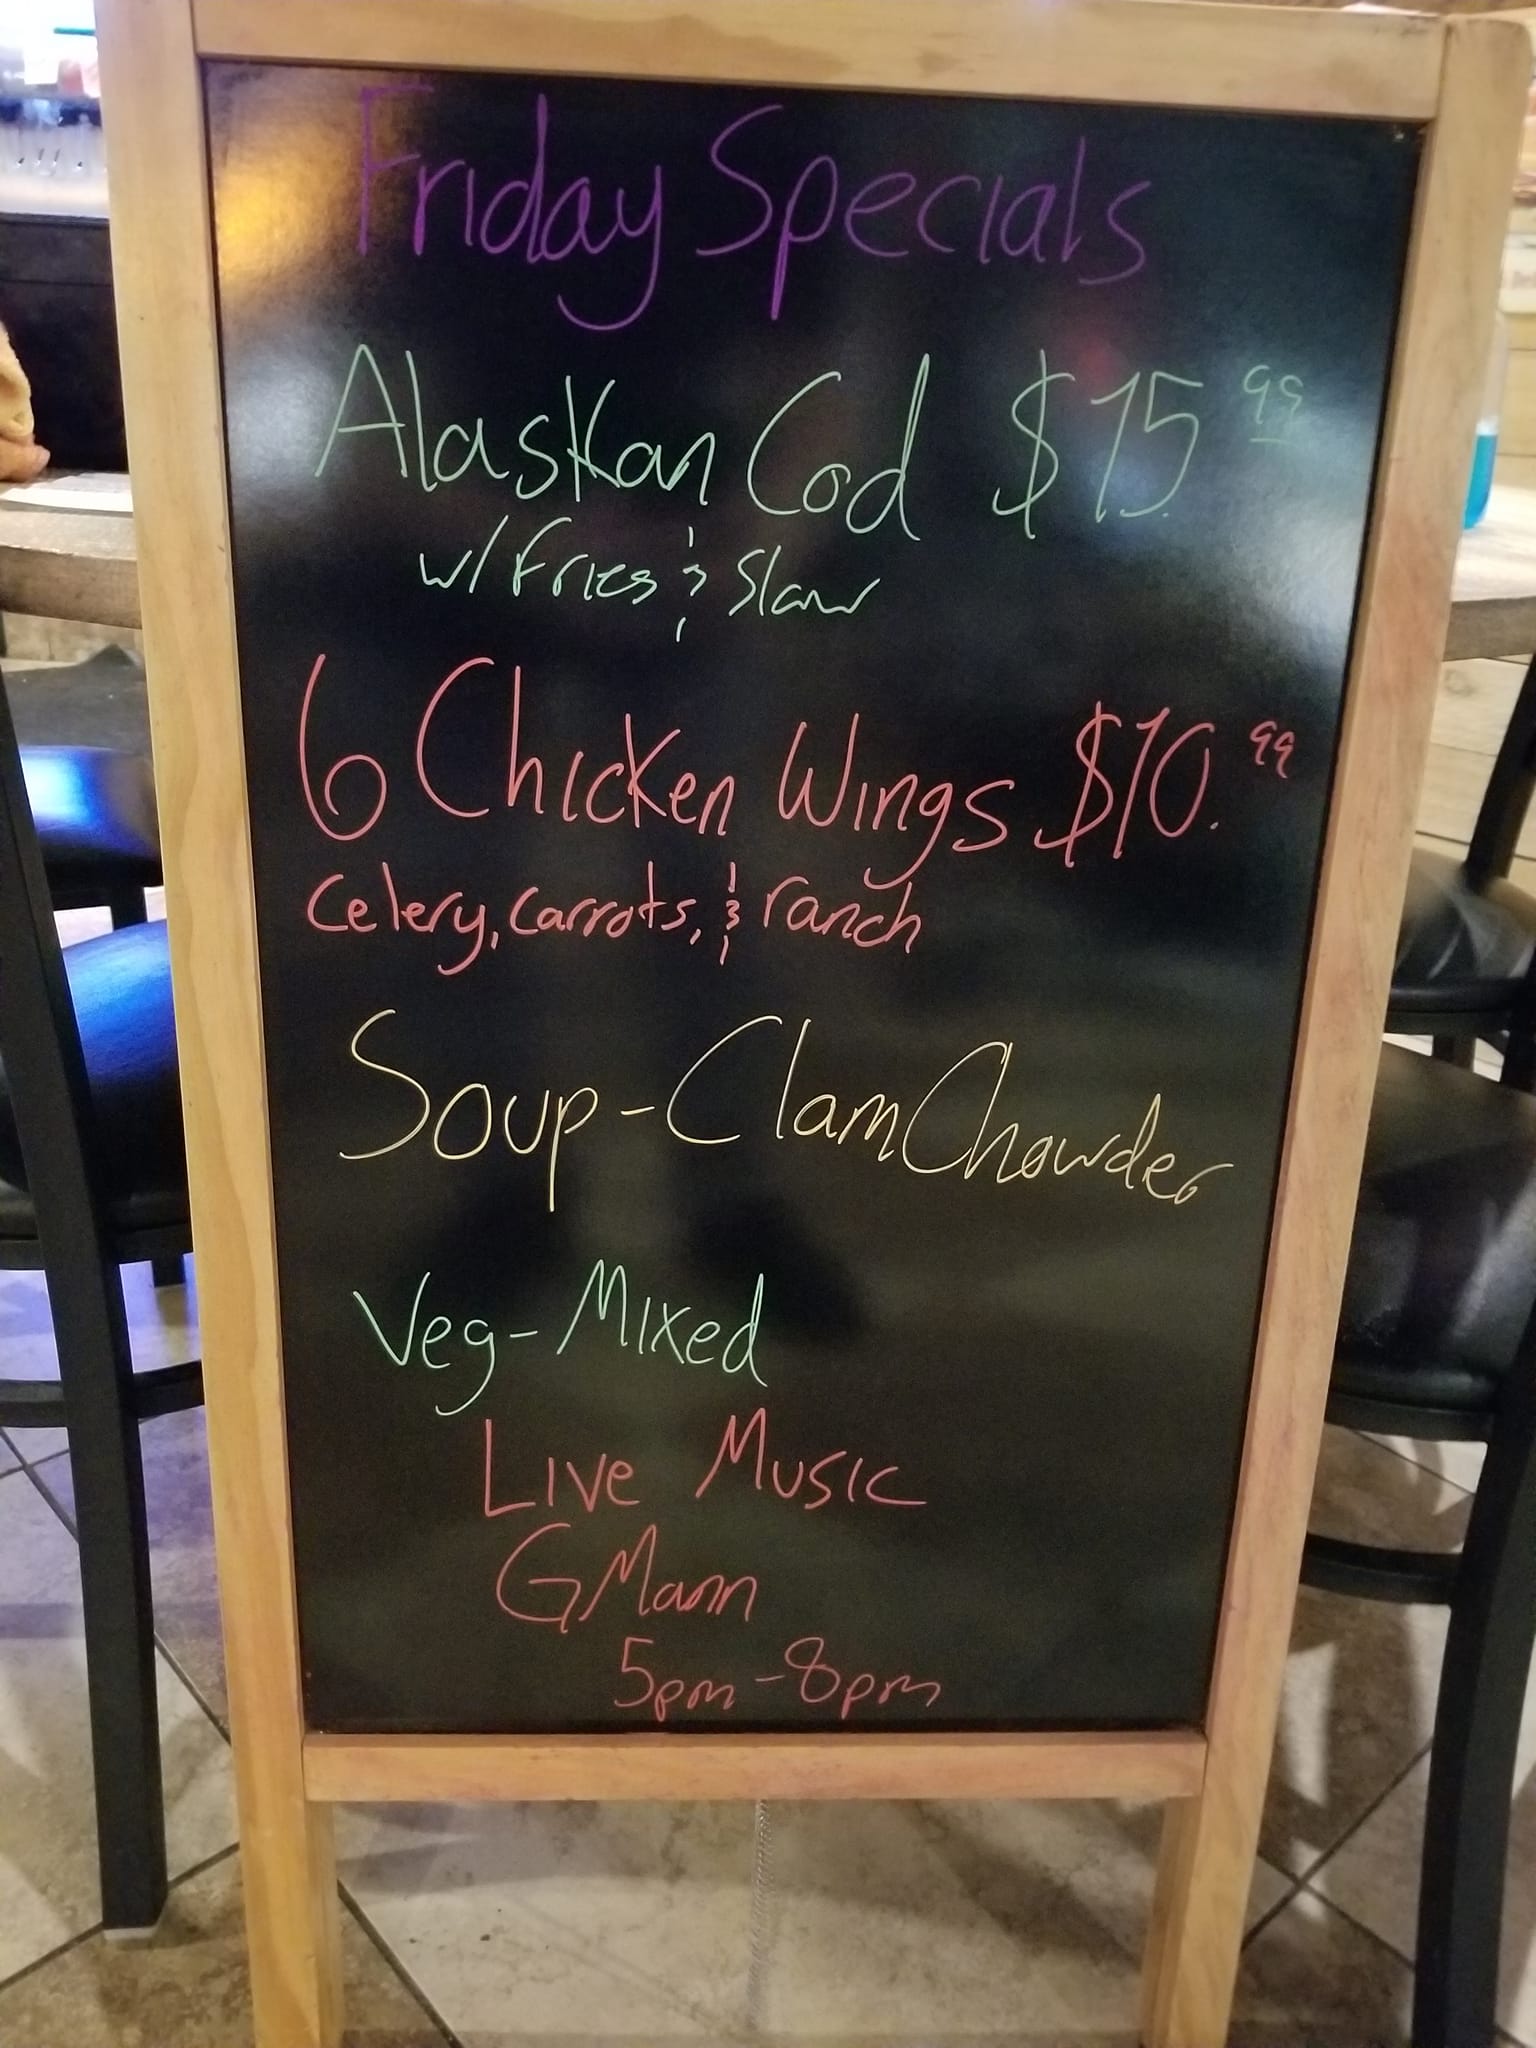 Friday Specials
Alaskan Cod $15.99
w/Fries & Slaw
6 Chicken Wings $10.99
Celery, carrots, & ranch
Soup-Clam Chowder
Veg-Mixed
Live Music
GMann
5pm-8pm